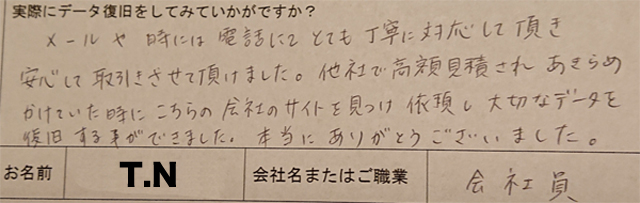 実際にデータ復旧をしてみていかがですか？
メールや時には電話にてとても丁寧に対応して頂き
安心して取引きさせて頂けました。他社で高額見積されあきらめ
かけていた時にこちらの会社のサイトを見つけ依頼し大切なデータを
復旧する事ができました。本当にありがとうございました。
お名前 T.N 会社名またはご職業 会社員